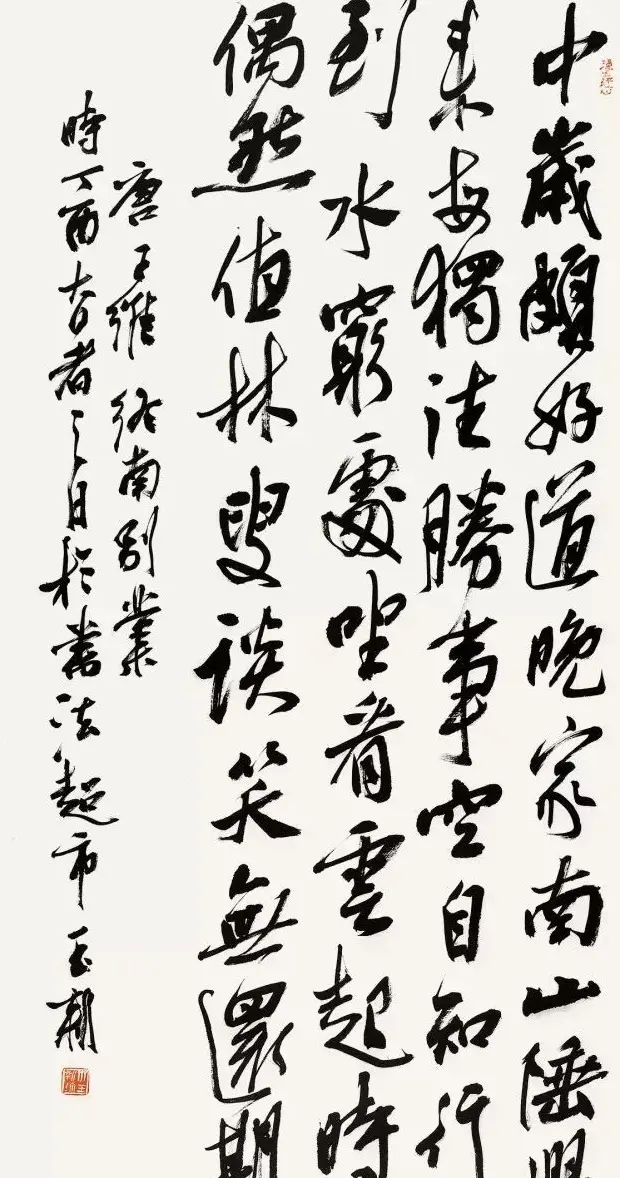 中歲頗好道晚家南山陲興
來每獨往勝事空自知行
到水窮處坐看雲起時
偶然值林叟談笑無還期
唐王維終南別業
時丁酉大暑之日於書法超市